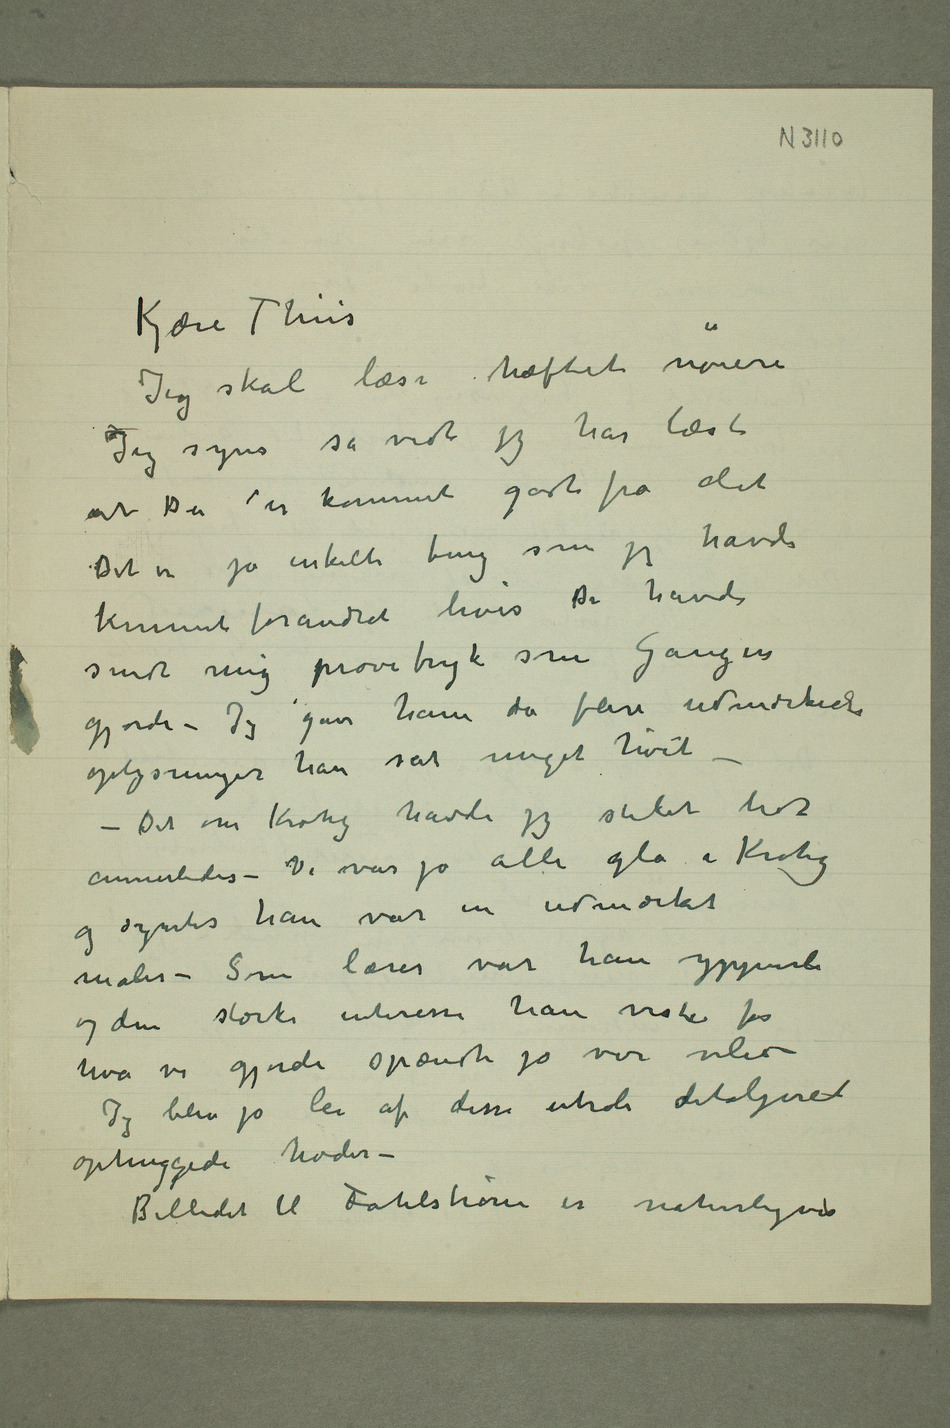 N 3110
Kjære Thiis
Jeg skal læse hæftet nöiere
Jeg synes så vidt jeg har læst
at De er kommet godt fra det
Det er jo enkelte ting som jeg havde
kunnet forandret hvis De havde
sendt mig prøvetryk som Gauguin
gjorde – Jeg gav ham da flere udmærkede
oplysninger han sat meget höit –
– Det om Krohg havde jeg stilet lidt
annerledes – Vi var jo alle gla i Krohg
og syntes han var en udmærket
maler – Som lærer var han ypperlig
og den stærke interesse han viste for
hva vi gjorde spændte jo vor vilie –
Jeg blev jo lei af disse utrole detaljeret
ophuggede hoder –
Billedet til Dahlstrøm er naturligvis